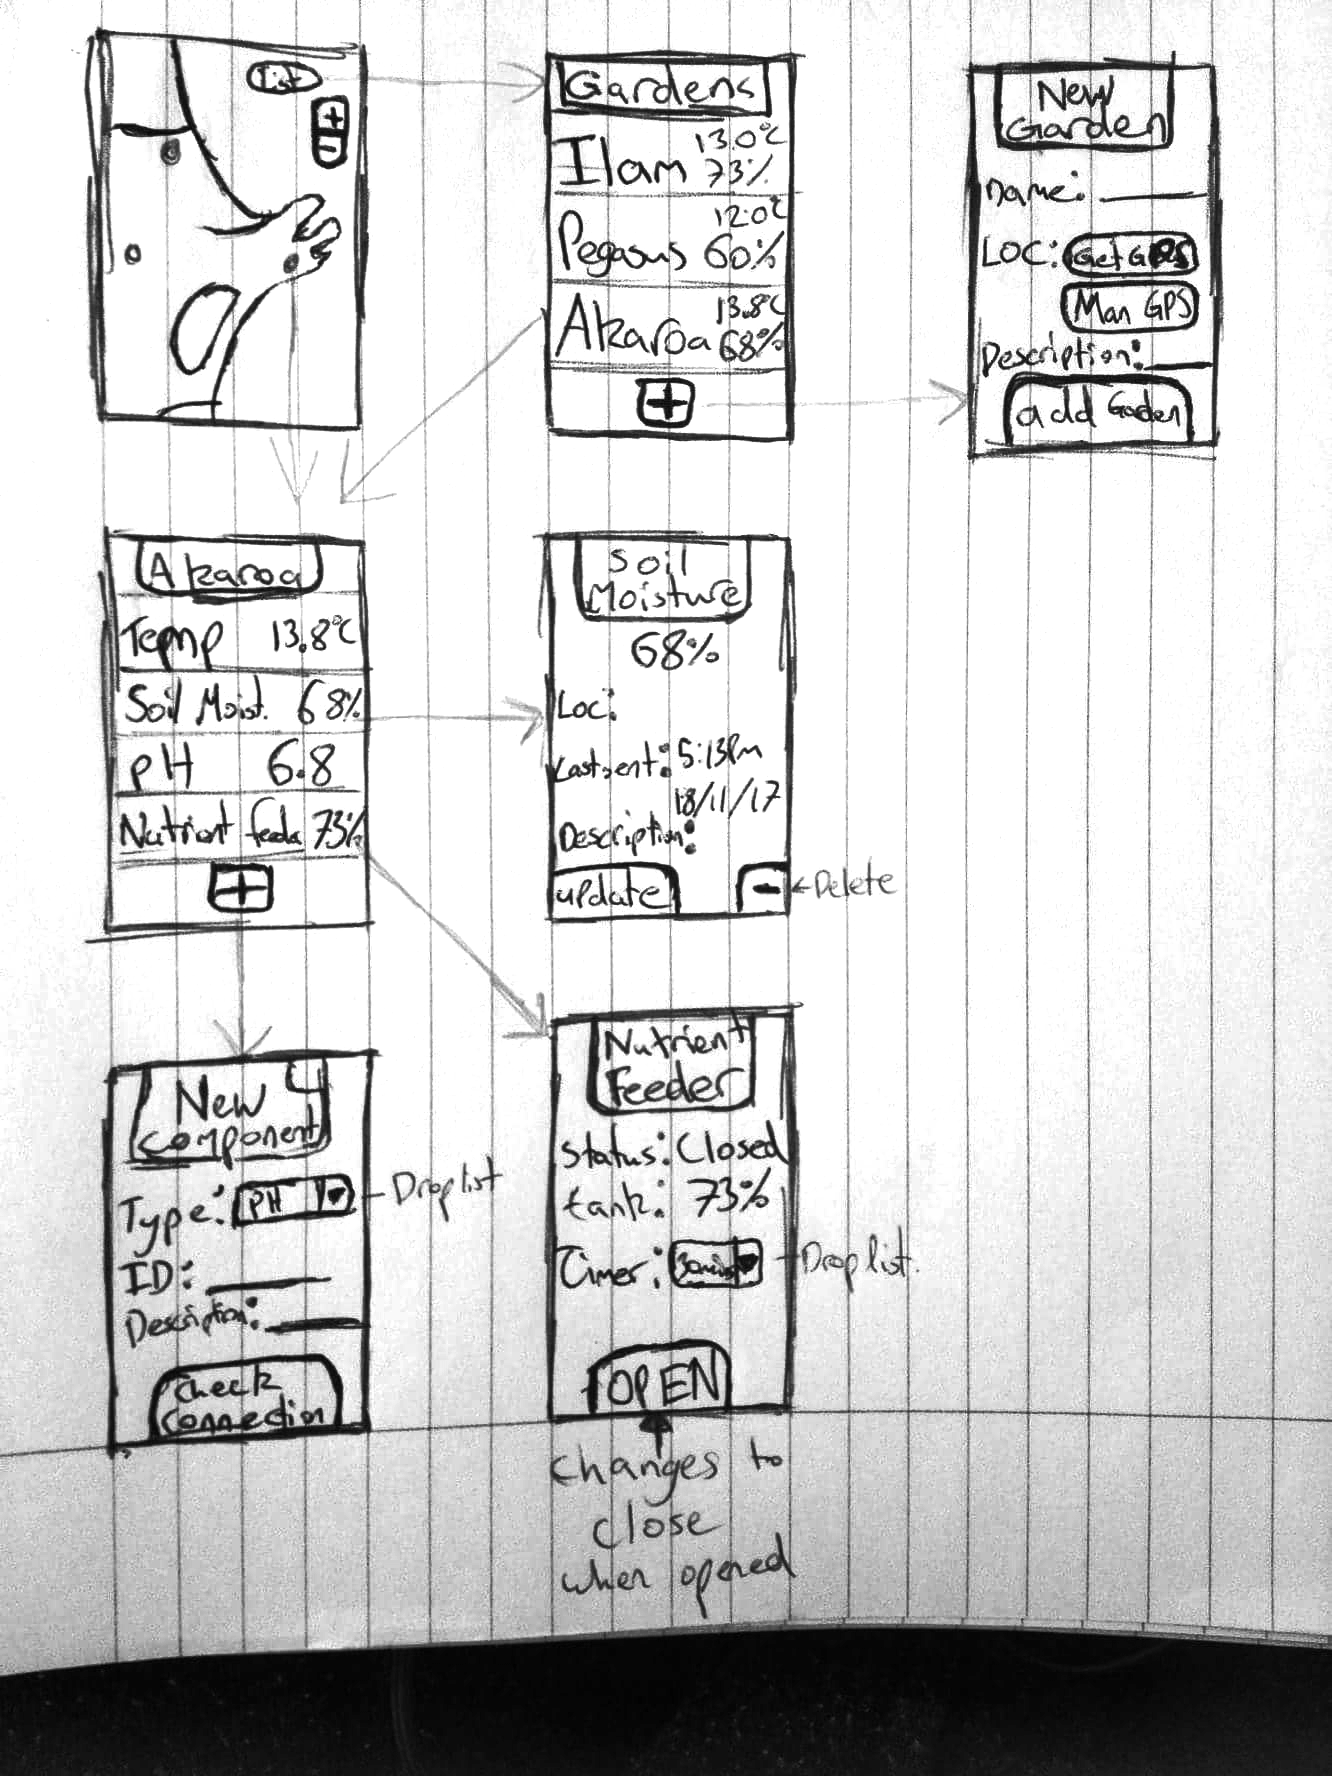 List
+
-
Gardens
Ilam 13.0°C
73%
Pegasus 12.0C
60%
Akaroa 13.8°C
68%
+
New
Garden
name:
LOC: Get GPS
Man GPS
Description:
add Garden
Akaroa
Temp 13.8°C
Soil Moist. 68%
pH 6.8
Nutrient feeda 73%
+
Soil
Moisture
68%
Loc:
Last sent: 5:13Pm
18/11/17
Description:
update
- ← Delete
New
component
Type: PH - Drop list
ID:
Description:
Check
Connection
Nutrient
Feeder
Status: Closed
tank: 73%
Timer: 30mins - Drop list.
OPEN
Changes to
close
when opened